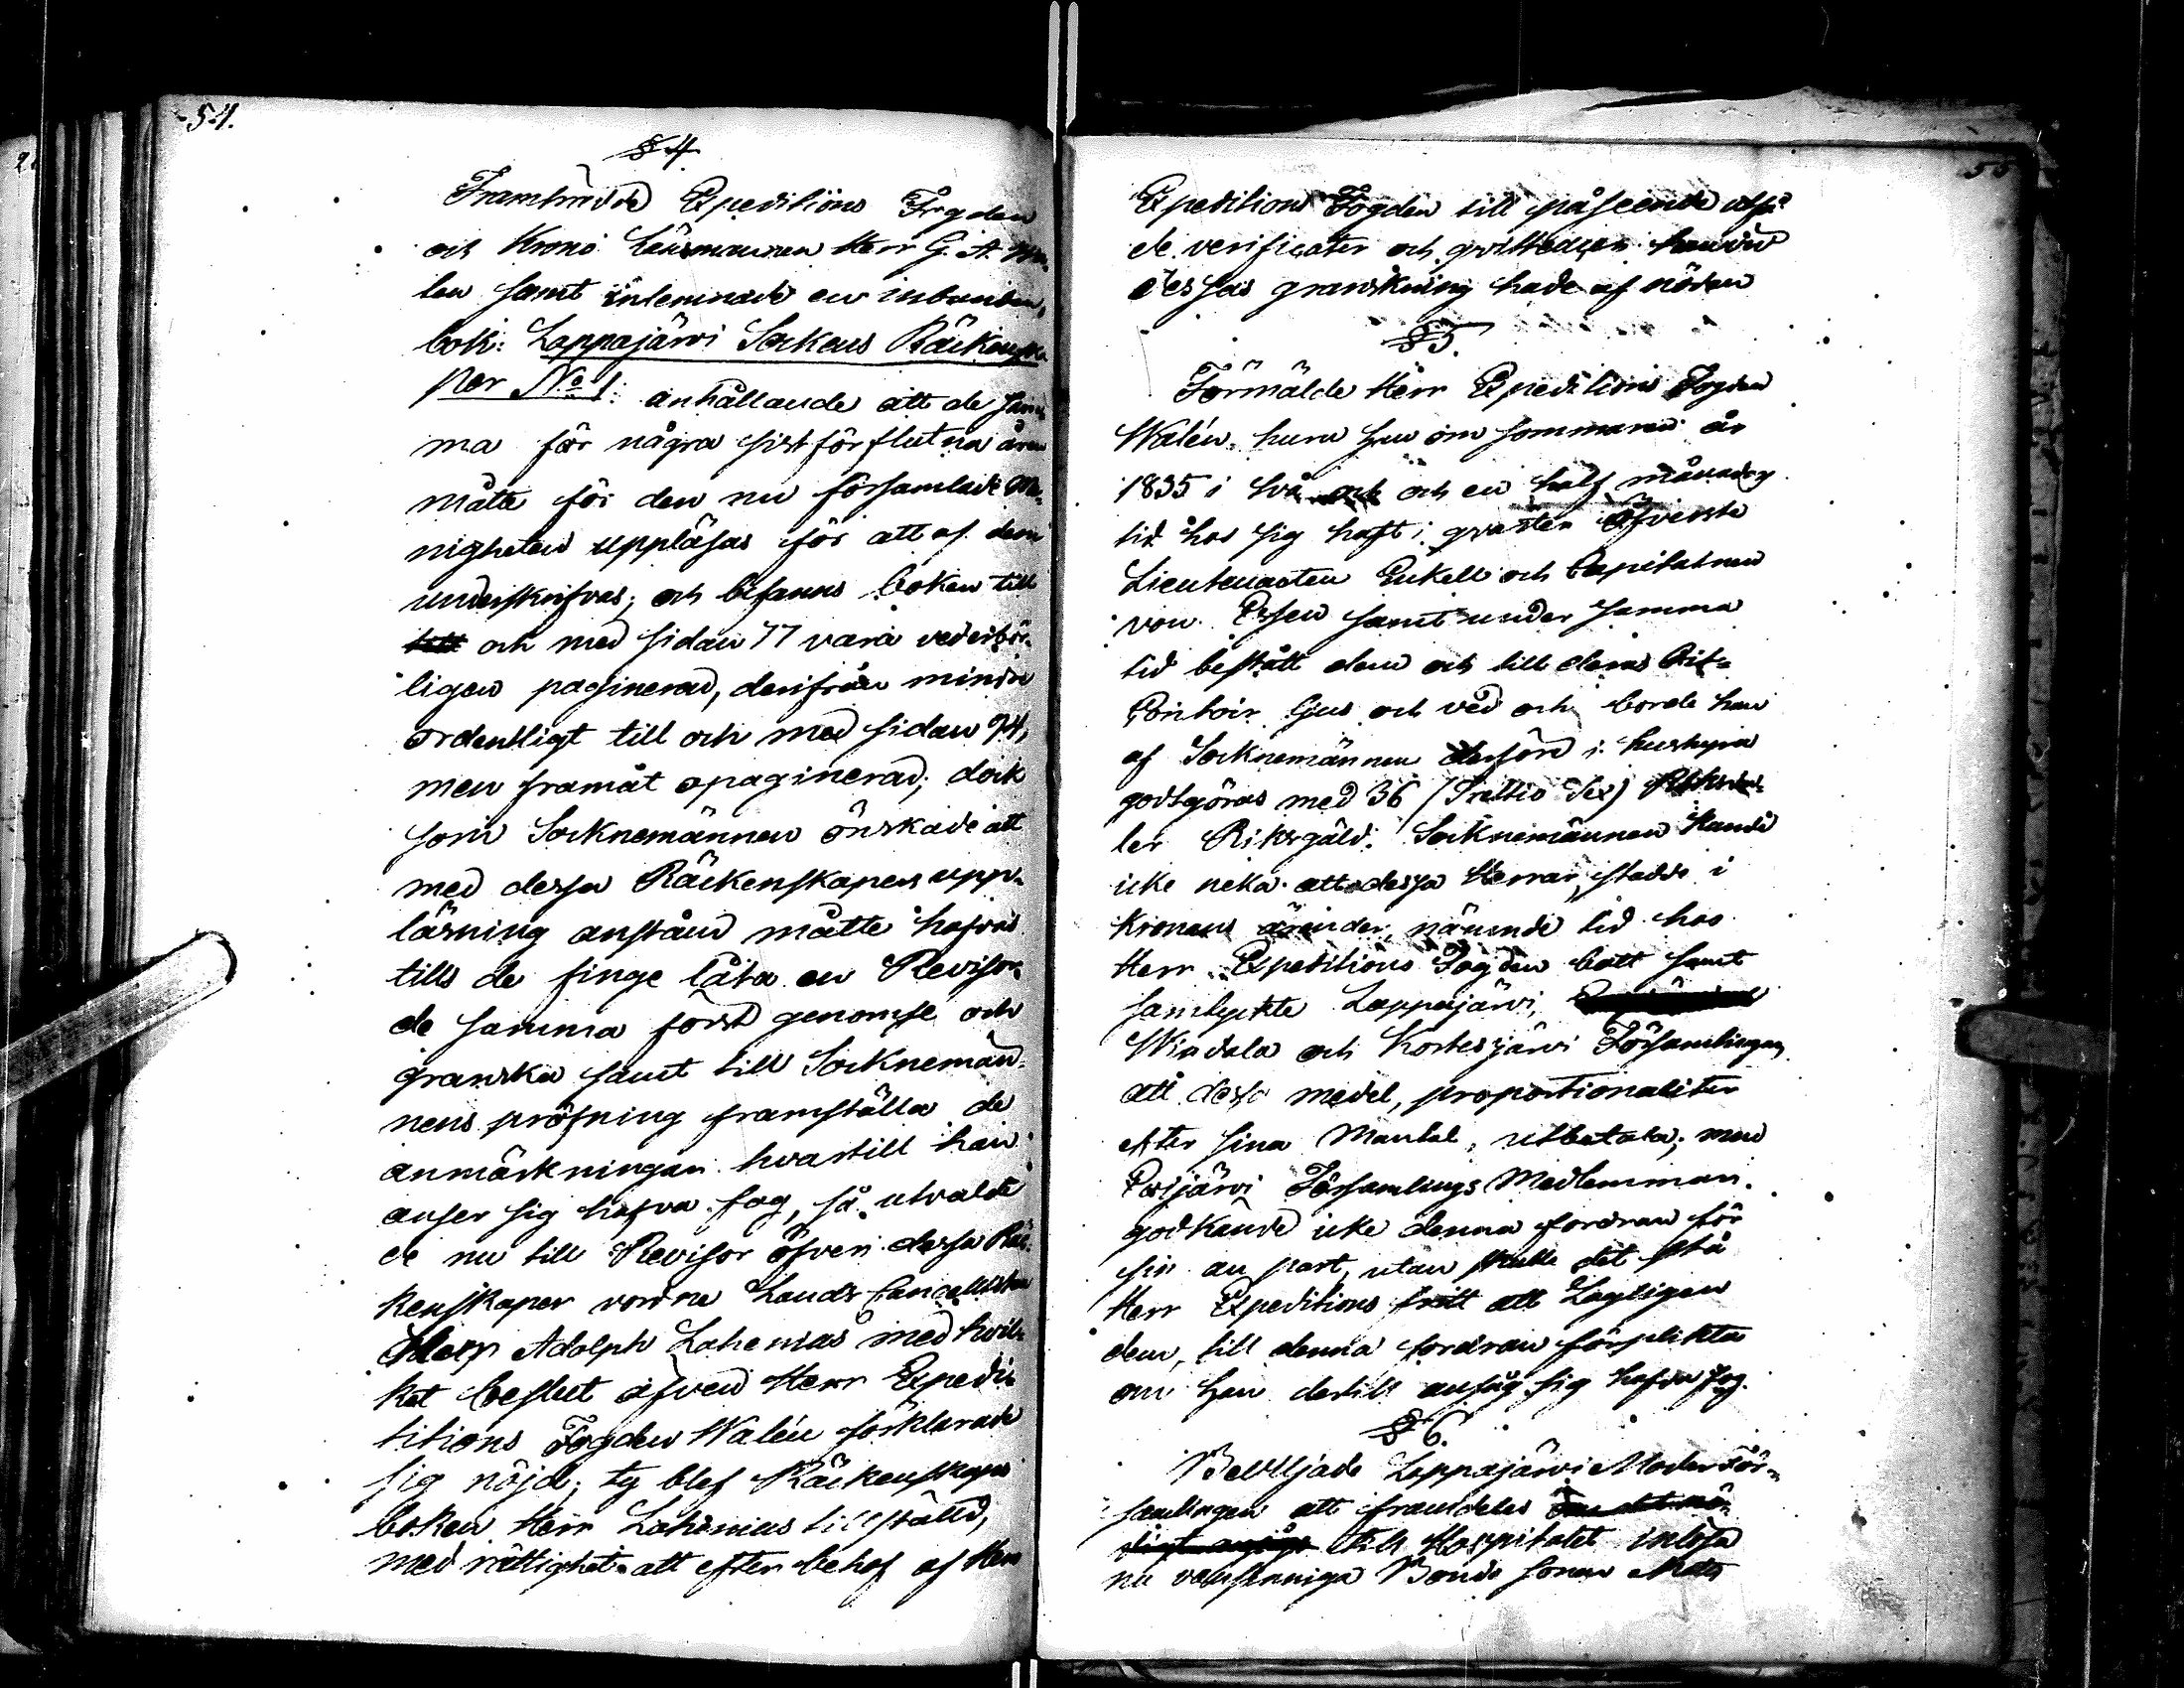 54.
§ 4
Framträdde Expeditions Fogden
och Krono Länsmannen Herr G. A. Wa-
len samt inlemnade en inbunden
bok: Lappajärvi Sockens Räkenska-
per No 1: anhållande att de sam-
ma för några sist förflutna åren
måtte för den nu församlade Me-
nigheten uppläsas för att af dem
underskrifvas; och befanns boken till
och med sidan 77 vara vederbör-
ligen paginerad, derifrån mindre
ordentligt till och med sidan 94,
men framåt opaginerad; dock
som Socknemännen önskade att
med dessa Räkenskapers upp-
läsning anstånd måtte hafvas
tills de finge låta en Revisor
de samma först genomse och
granska samt till Socknemän-
nens pröfning framställa de
anmärkningar hvartill han
anser sig hafva fog, så utvalde
de nu till Revisor öfver dessa Rä-
kenskaper vordne Lands Cancellisten
Herr Adolph Lahenius med hvil-
ket beslut äfven Herr Expedi-
titions Fogden Walén förklarade
sig nöjd; ty blef Räkenskaps
boken Herr Lahenius tillställd,
med rättighet att efter behof af Herr
55
Expeditions Fogden till påseende utfå
de verificater och qvittencer han vid
dessas granskning hade af nöden
§ 5.
Förmälde Herr Expeditions Fogden
Walén, huru han om sommaren år
1835 i två och en half månaders
tid hos sig haft i qvarter Öfverste
Lieutenanten Enkell och Capitainen
von Essen samt under samma
tid bestått dem och till deras Rit-
Contoir ljus och ved och borde han
af Socknemännen derföre i hushyra
godtgöras med 36 (Trettio Sex) Riksda-
ler Riksgäld. Socknemännen kunde
icke neka att dessa Herrar, stadde i
Kronans ärender, nämnde tid hos
Herr Expeditions Fogden bott samt
samtyckte Lappajärvi,
Windala och Kortesjärvi Församlingar
att dessa medel, proportionaliter
efter sina Mantal, utbetala; men
Evijärvi Församlings Medlemmar
godkände icke denna fordran för
sin an part, utan skulle det stå
Herr Expeditions fritt att Lagligen
dem, till denna fordran förplikta
om han dertill ansåg sig hafva fog.
§ 6.
Beviljade Lappajärvi Moder För-
samlingen att framdeles
till Hospitalet inlösa
nu vansinniga Bonde sonen Mats